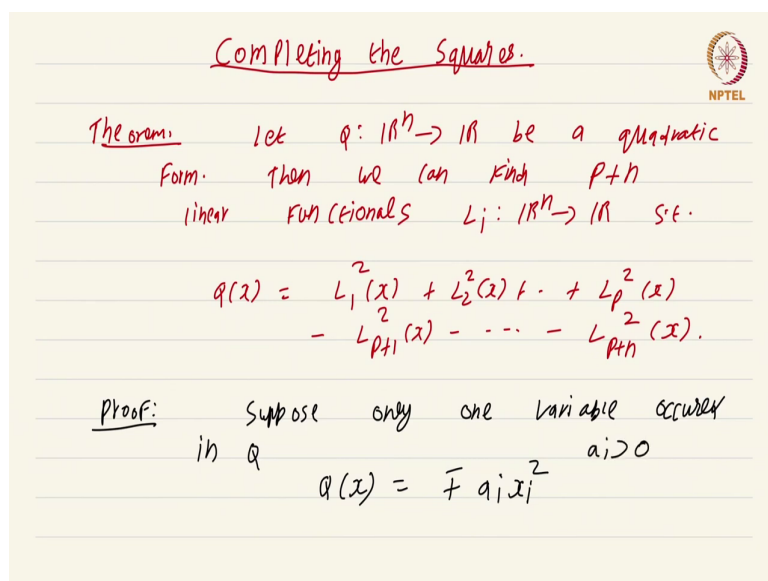 Completing the Squares.
NPTEL
Theorem. Let Q: ℝⁿ → ℝ be a quadratic
Form. Then we can find p+n
linear functionals Lⱼ: ℝⁿ → ℝ s.t.
Q(x) = L₁²(x) + L₂²(x) + · + Lₚ²(x)
− Lₚ₊₁²(x) − ---- − Lₚ₊ₙ²(x).
Proof: Suppose only one variable occures
in Q aᵢ>0
Q(x) = ∓ aᵢxᵢ²